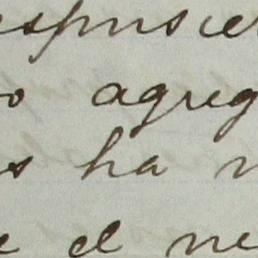 espusier
o agreg
s ha n
e el ne